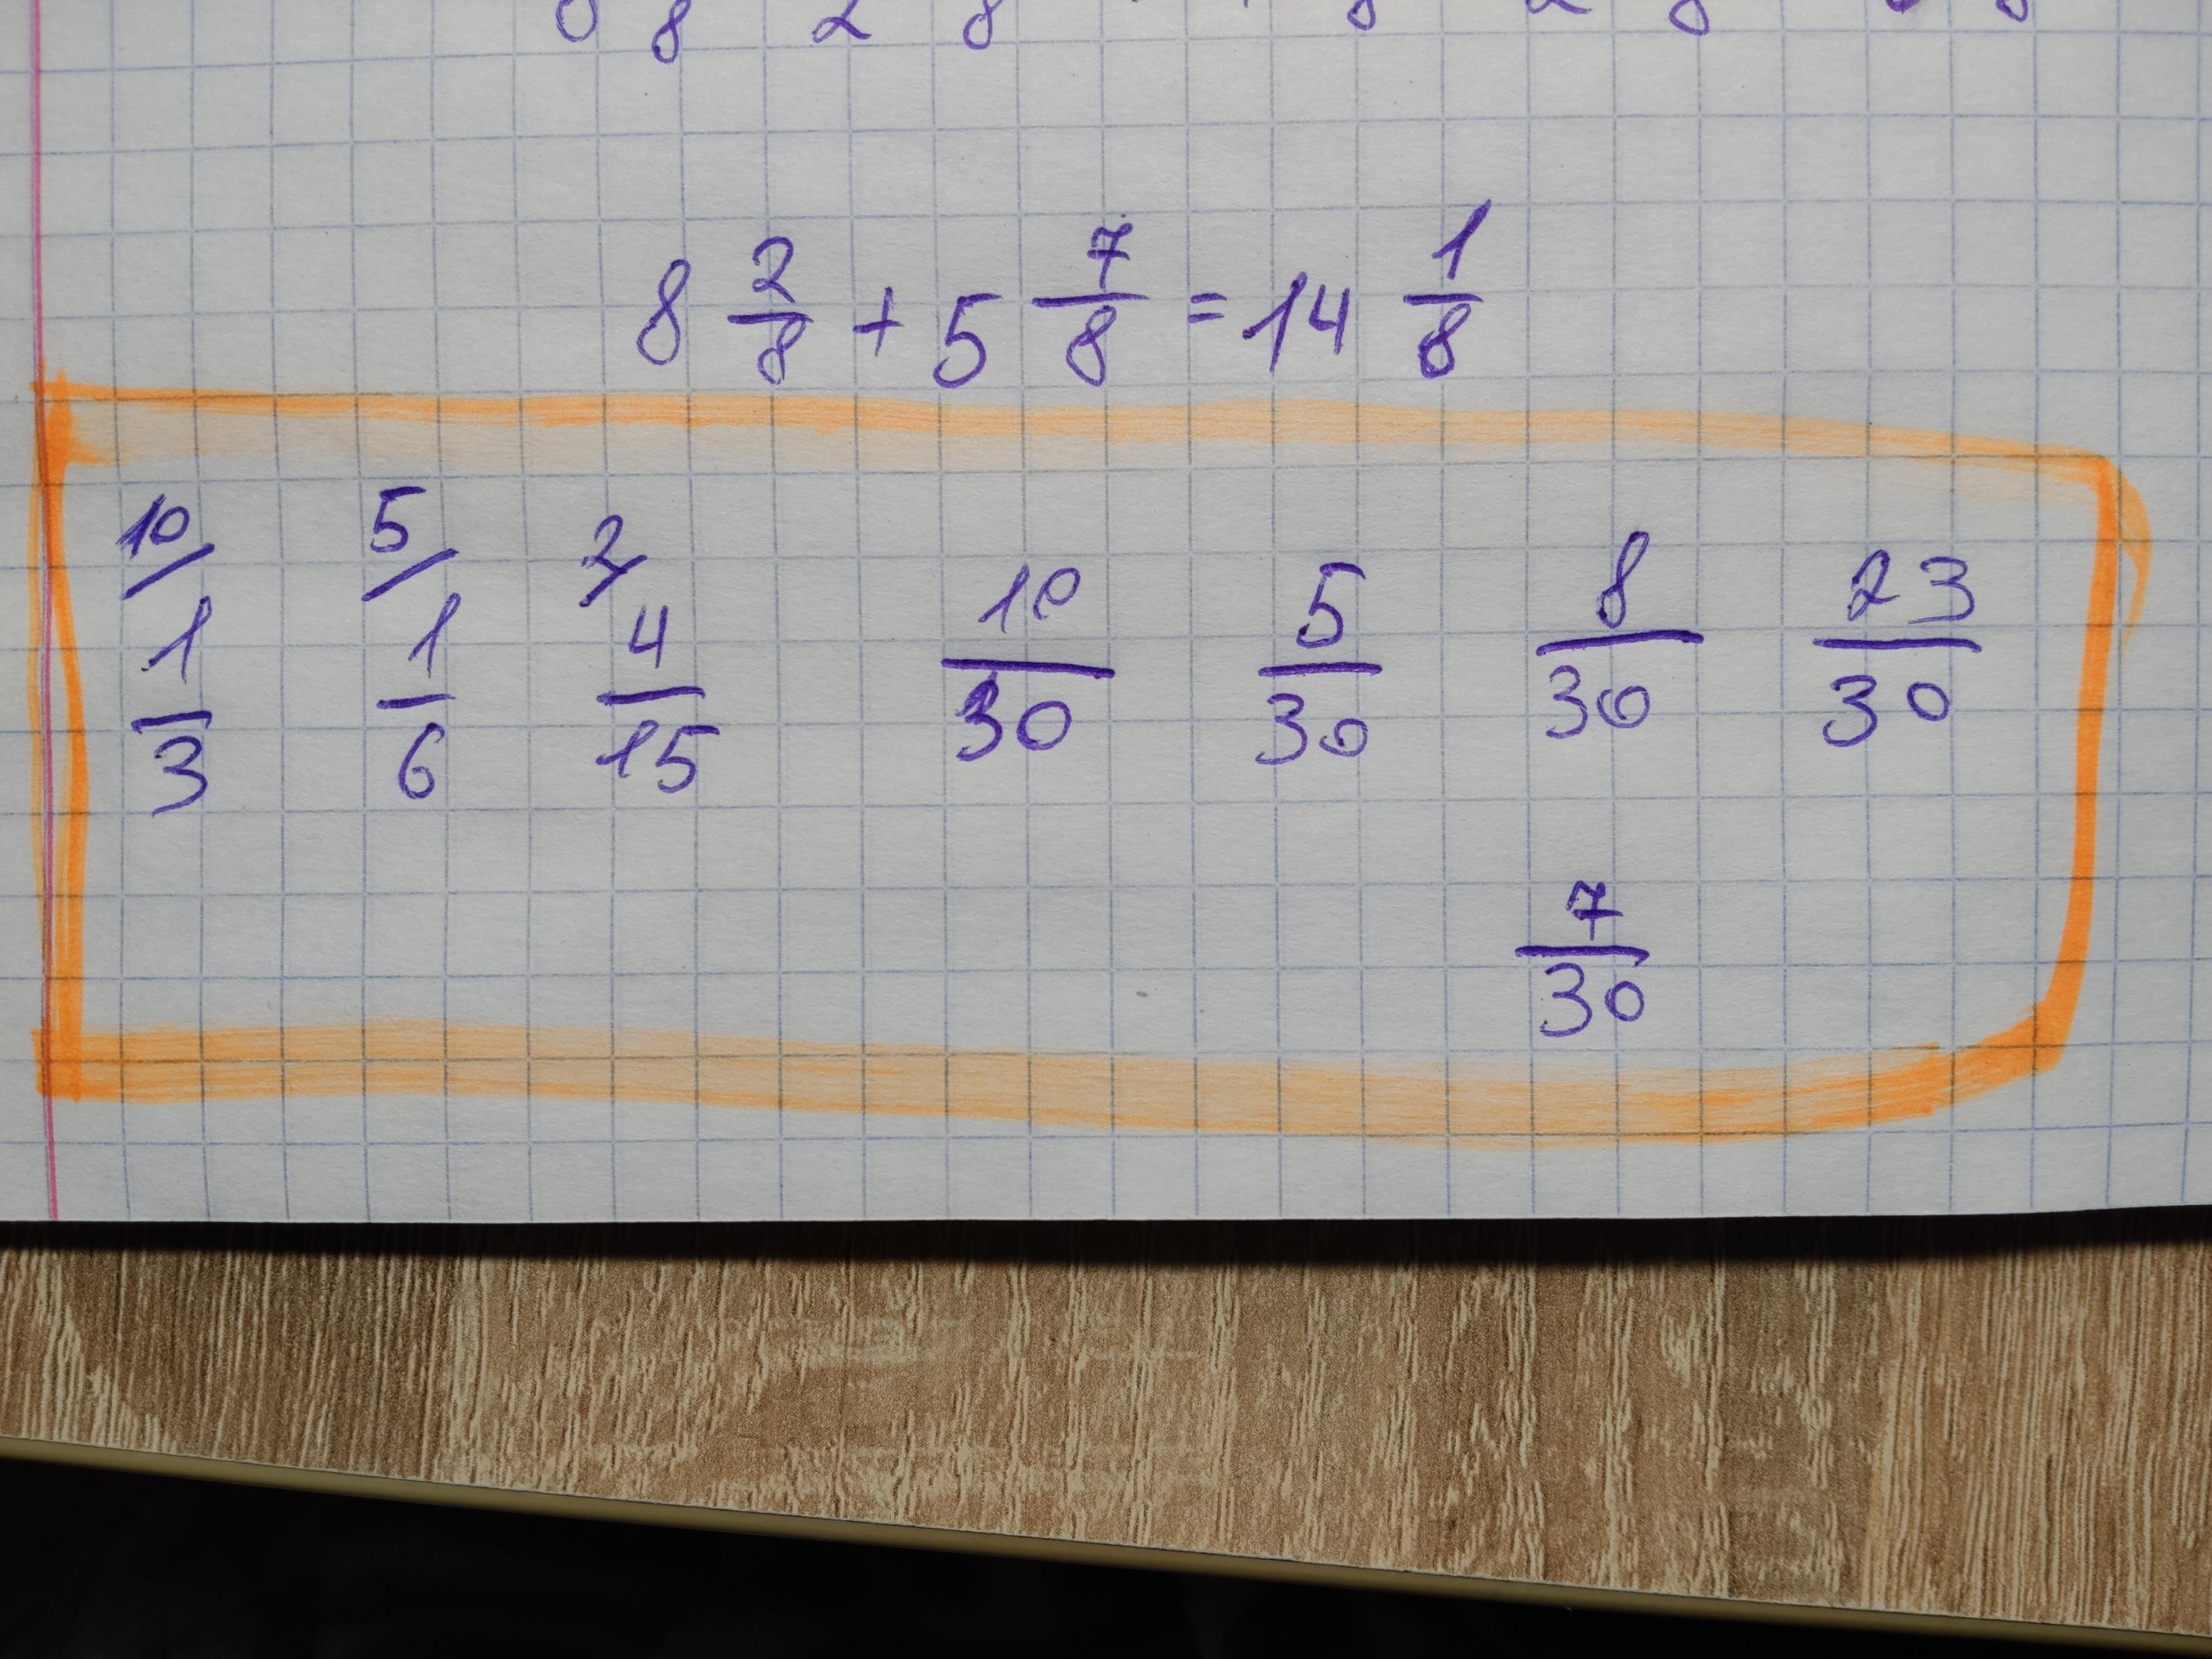 8 2/8 + 5 7/8 = 14 1/8
10/ 5/ 2/
1/3 1/6 4/15 10/30 5/30 8/30 23/30
7/30